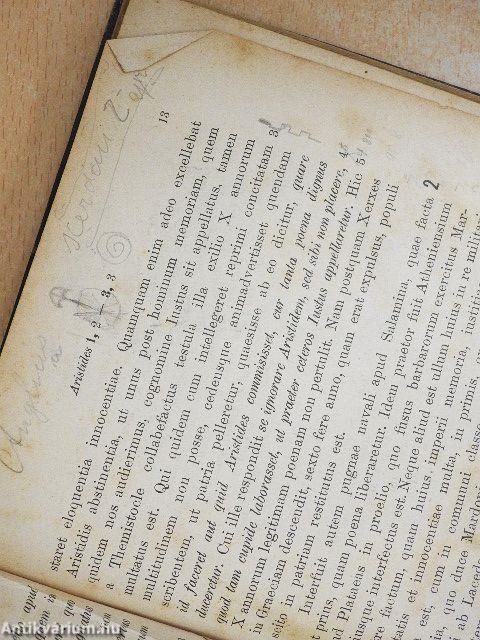 Aristides 1, 2 — 3, 3
13
staret eloquentia innocentiae. Quamquam enim adeo excellebat
Aristidis abstinentia, ut unus post hominum memoriam, quem
quidem nos audierimus, cognomine Iustus sit appellatus, tamen
a Themistocle collabefactus testula illa exilio X annorum
multatus est. Qui quidem cum intellegeret reprimi concitatam 3
multitudinem non posse, cedensque animadvertisset quendam
scribentem, ut patria pelleretur, quaesisse ab eo dicitur, quare
id faceret aut quid Aristides commisisset, cur tanta poena dignus
duceretur. Cui ille respondit se ignorare Aristidem, sed sibi non placere, 4
quod tam cupide laborasset, ut praeter ceteros Iustus appellaretur. Hic 5
X annorum legitimam poenam non pertulit. Nam postquam Xerxes
in Graeciam descendit, sexto fere anno, quam erat expulsus, populi
scito in patriam restitutus est.
Interfuit autem pugnae navali apud Salamina, quae facta 2
prius, quam poena liberaretur. Idem praetor fuit Atheniensium
ud Plataeas in proelio, quo fusus barbarorum exercitus Mar-
usque interfectus est. Neque aliud est ullum huius in re militari
factum, quam huius imperii memoria, iustitiae
tis et innocentiae multa, in primis,
est, cum in communi classe
quo duce Mardon
ab Laced
apud
Antikvarium.hu